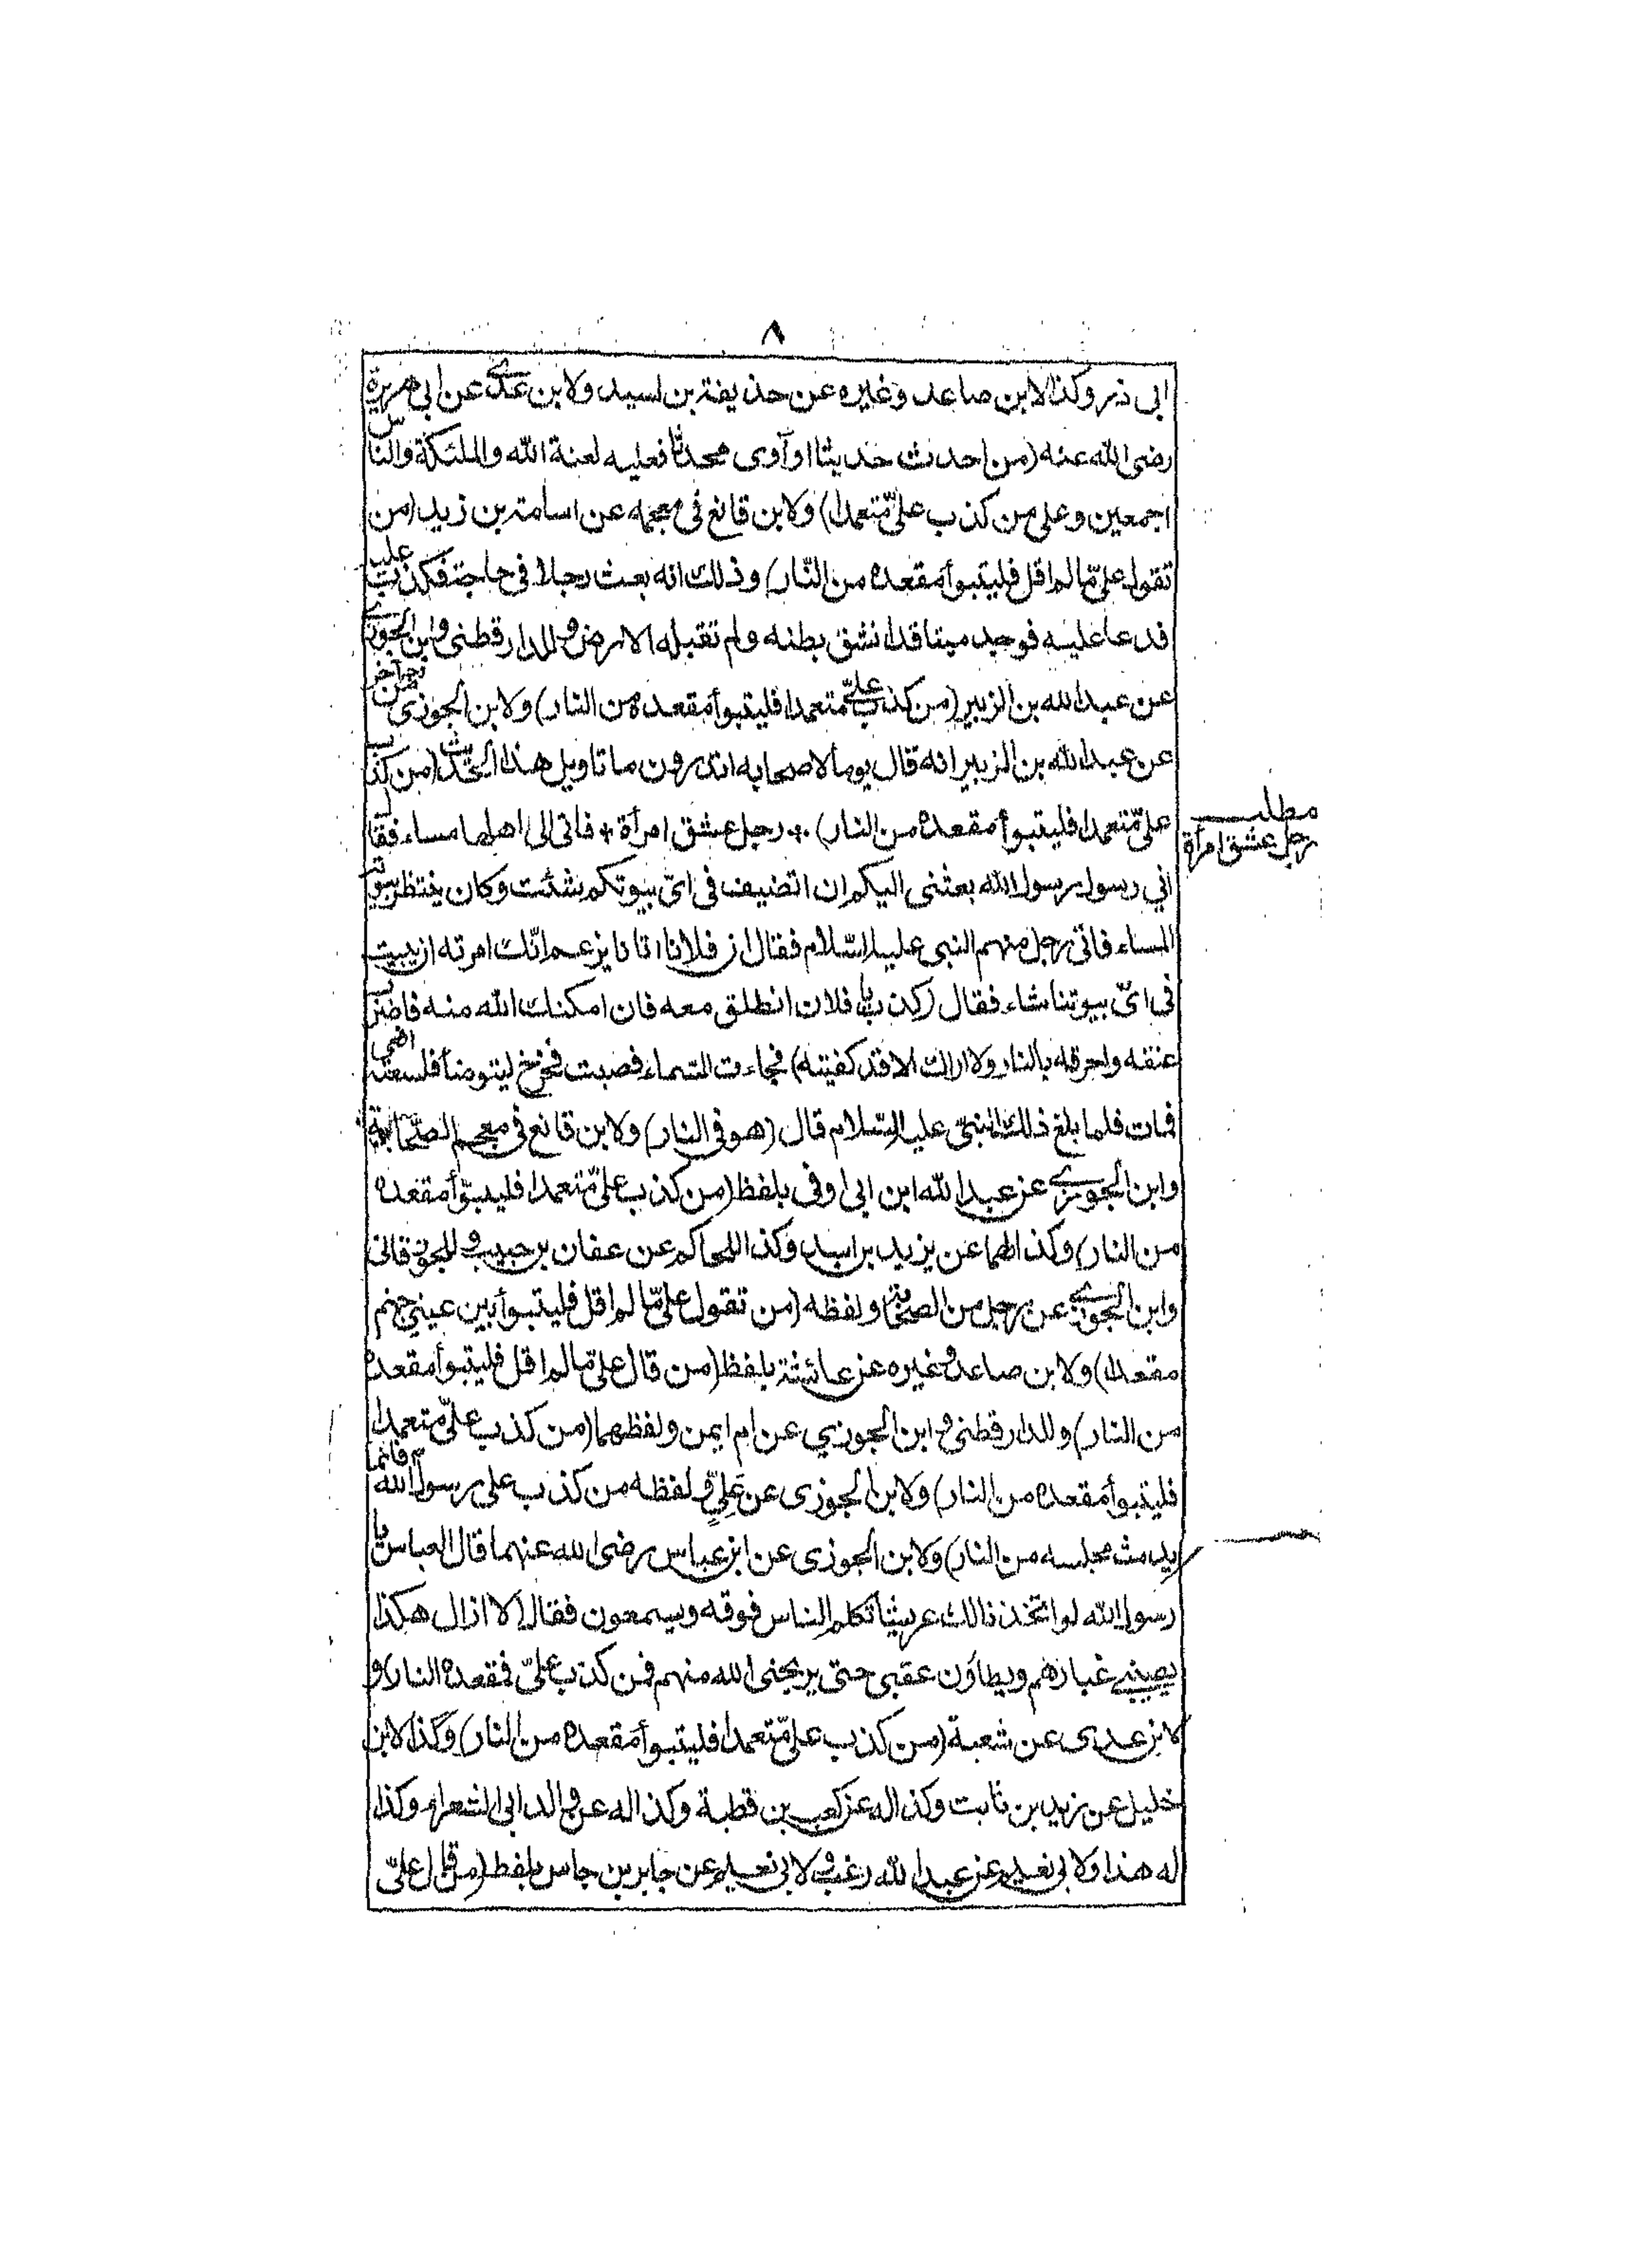 ٨
ابى ذر وكذا لابن صاعد وغيره عن حذيفة بن اسيد ولابن عدى عن ابى هريرة
رضى الله عنه (من احدث حديثا او آوى محدثا فعليه لعنة الله والملئكة والناس
اجمعين وعلى من كذب علىّ متعمدا) ولابن قانع فى معجمه عن اسامة بن زيد (من
تقول علىّ ما لم اقل فليتبوأ مقعده من النّار) وذلك انه بعث رجلا فى حاجة فكذب عليه
فدعا عليه فوجد ميتا قد انشق بطنه ولم تقبله الارض وللدارقطنى وابن الجوزى
عن عبد الله بن الزبير (من كذب علىّ متعمدا فليتبوأ مقعده من النار) ولابن الجوزى من وجه آخر
عن عبد الله بن الزبير انه قال يوما لاصحابه اتدرون ما تاويل هذا الحديث (من كذب
علىّ متعمدا فليتبوأ مقعده من النار) رجل عشق امرأة فاتى الى اهلها مساء فقال
مطلب
رجل عشق امرأة
انى رسول رسول الله بعثنى اليكم ان اتضيف فى اىّ بيوتكم شئت وكان ينتظر بيوتة
المساء فاتى رجل منهم النبى عليه السّلام فقال ان فلانا اتانا يزعم انّك امرته ان يبيت
فى اىّ بيوتنا شاء فقال (كذب يا فلان انطلق معه فان امكنك الله منه فاضرب
عنقه واحرقه بالنار ولا اراك الا قد كفيته) فجاءت السّماء فصبت فخرج ليتوضأ فلسعته افعى
فمات فلما بلغ ذلك النبىّ عليه السّلام قال (هو فى النار) ولابن قانع فى معجم الصّحابة
وابن الجوزى عن عبد الله ابن ابى اوفى بلفظ (من كذب علىّ متعمدا فليتبوّأ مقعده
من النار) وكذا لهما عن يزيد بن اسد وكذا للحاكم عن عفان بن حبيب وللجوزقانى
وابن الجوزى عن رجل من الصحابة ولفظه (من تقول علىّ ما لم اقل فليتبوأ بين عينى جهنم
مقعدا) ولابن صاعد وغيره عن عائشة بلفظ (من قال علىّ ما لم اقل فليتبوأ مقعده
من النار) وللدارقطنى وابن الجوزي عن ام ايمن ولفظهما (من كذب علىّ متعمدا
فليتبوأ مقعده من النار) ولابن الجوزى عن علىٍّ ولفظه من كذب على رسول الله فانما
يدمث مجلسه من النار) ولابن الجوزى عن ابن عباس رضى الله عنهما قال العباس يا
رسول الله لو اتخذنا لك عريشا تكلم الناس فوقه ويسمعون فقال (لا ازال هكذا
يصيبنى غبارهم ويطاؤن عقبى حتى يريحنى الله منهم فمن كذب علىّ فمقعده النار) و
لابن عدى عن شعبة (من كذب علىّ متعمدا فليتبوأ مقعده من النار) وكذا لابن
خليل عن زيد بن ثابت وكذا له عن كعب بن قطبة وكذا له عن والد ابى الشعراء وكذا
له هذا ولابى نعيم عن عبد الله زغب ولابى نعيم عن جابر بن حابس بلفظ (من قال علىّ